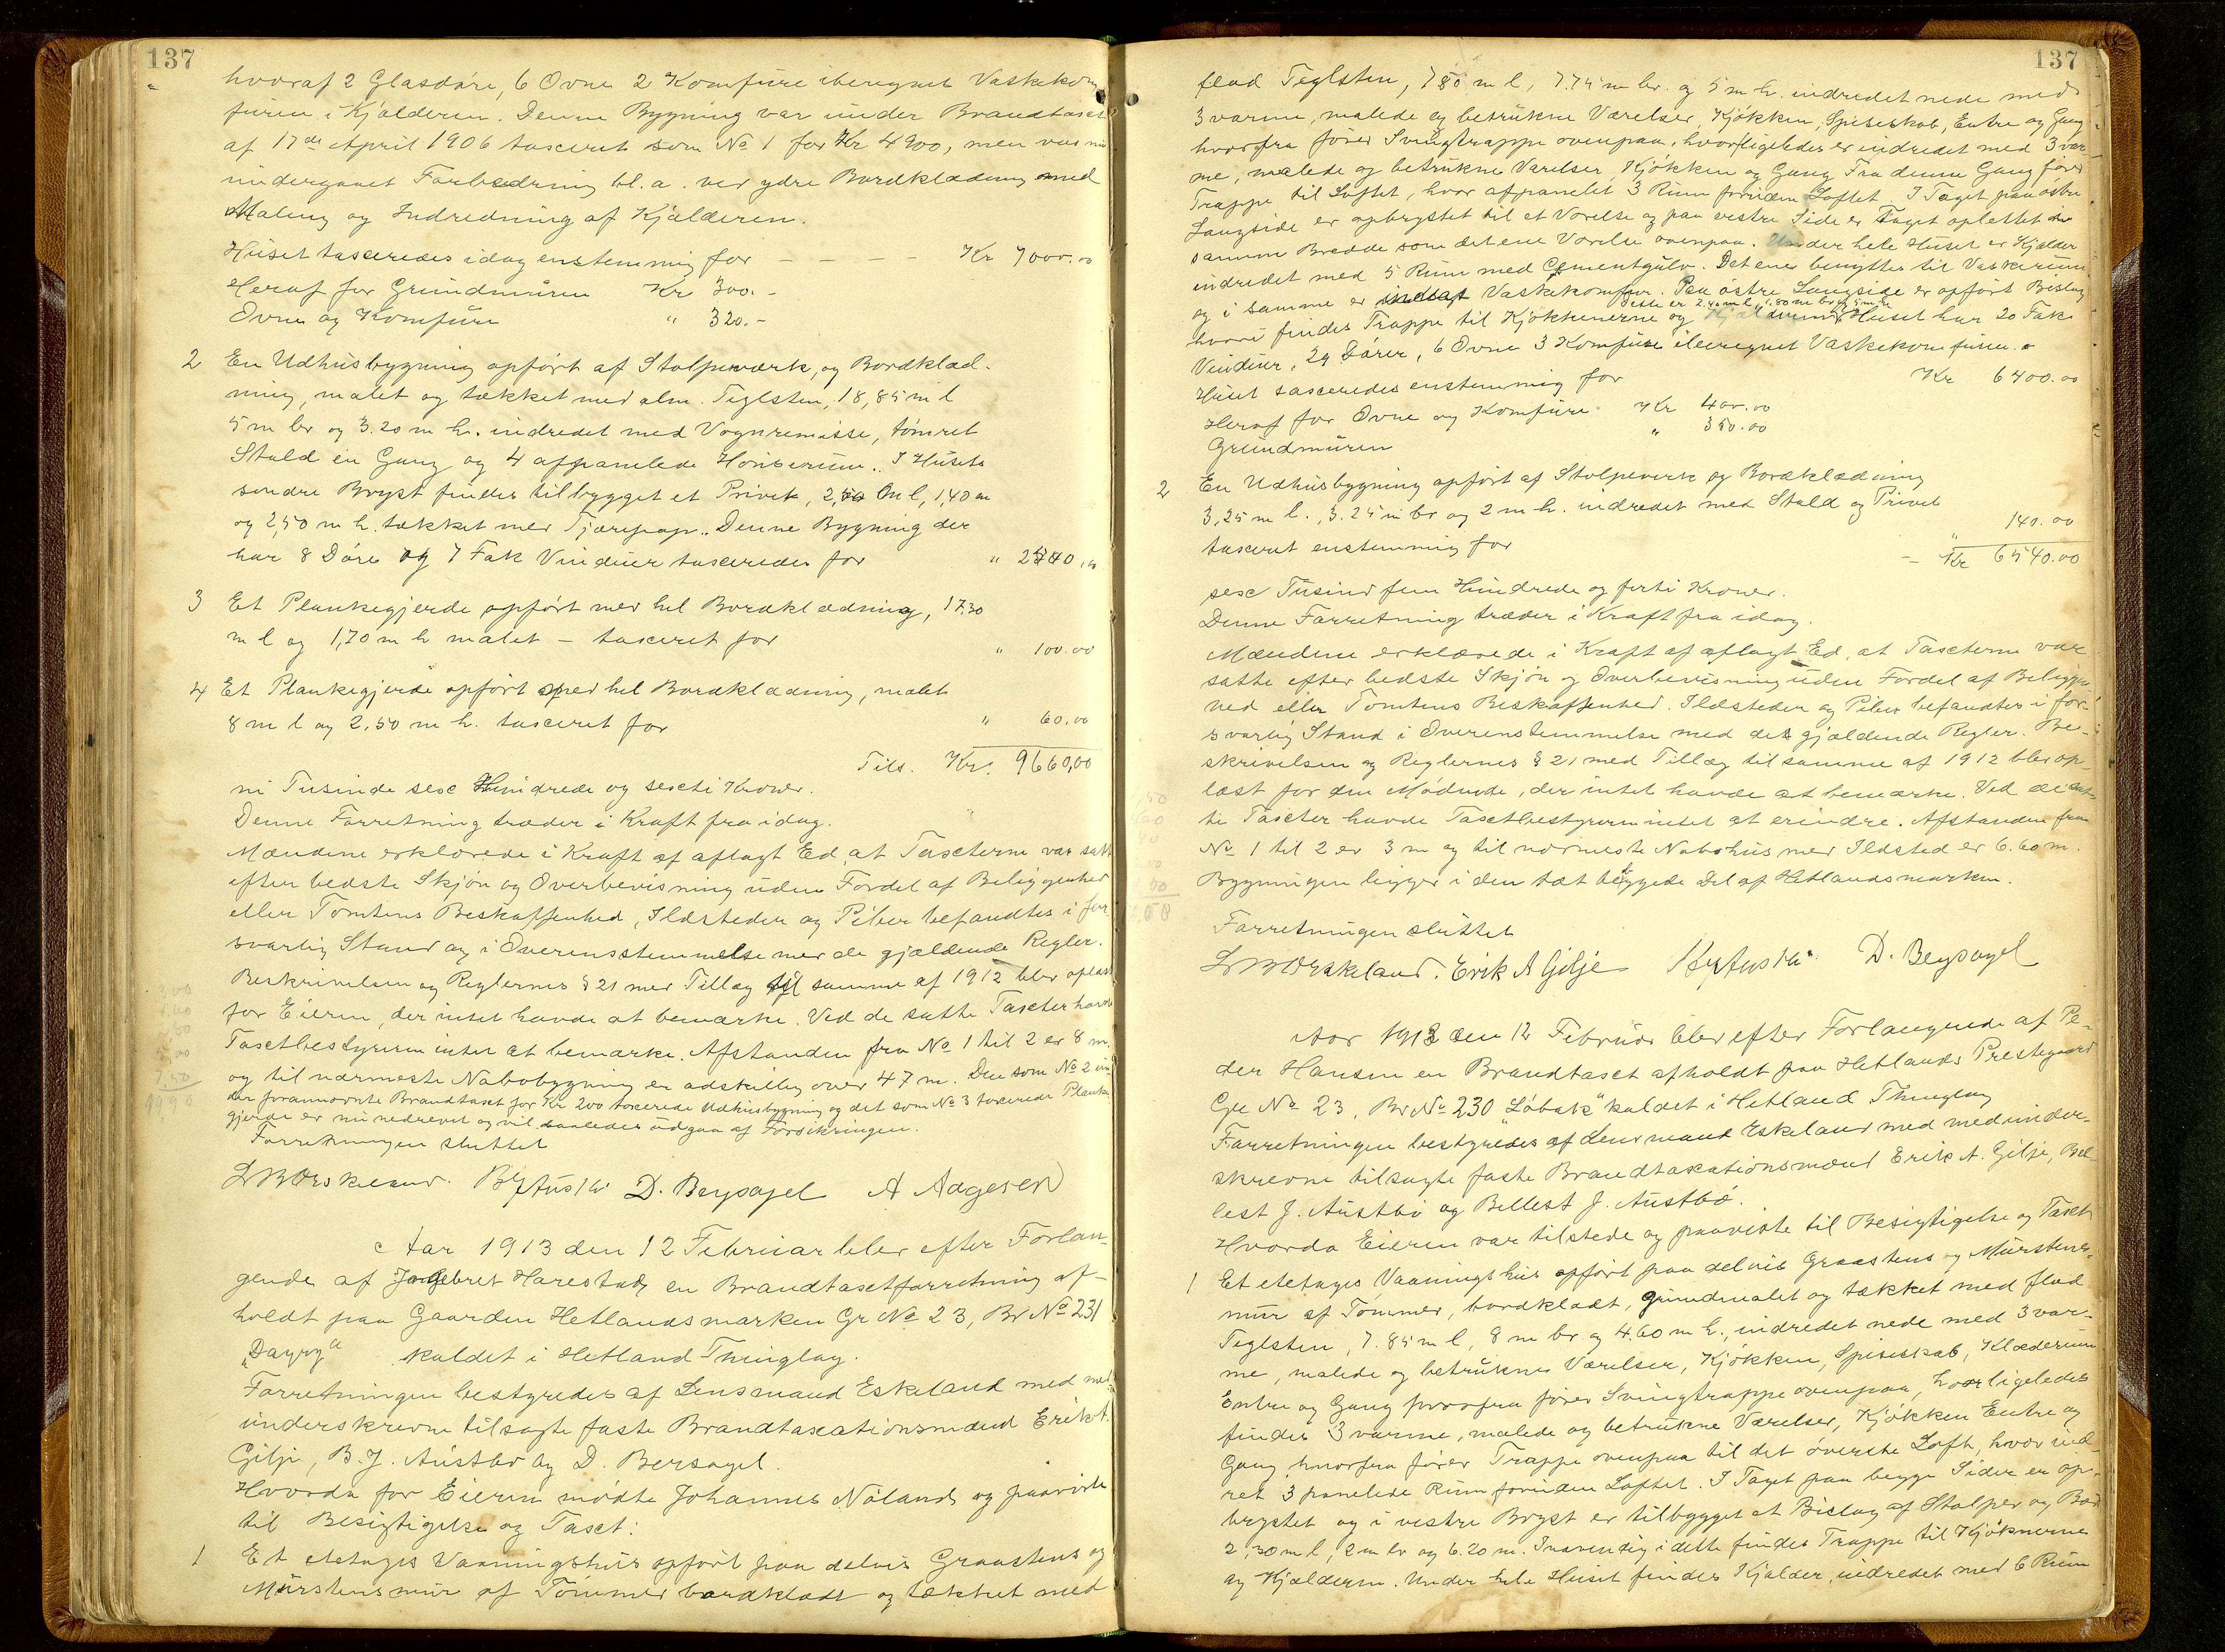 137
hvoraf 2 Glasdøre, 6 Ovne 2 Komfure iberegnet Vaskekom
furen i Kjælderen. Denne Bygning var under Brandtaxt
af 17de April 1906 taxeret som No 1 for Kr 4900, men var nu
undergaaet Forbedring bl. a. ved ydre Bordklædning med
Maling og Indredning af Kjælderen.
Huset taxeredes idag enstemmig for - - - - Kr 7000.00
Heraf for Grundmuren Kr 300.-
Ovne og Komfure " 320.-
2 En Udhusbygning opført af Stolpeværk, og Bordklæd-
ning, malet og tækket med alm. Teglsten, 18,85 m l
5 m br og 3.20 m h. indredet med Vognremisse, tømret
Stald en Gang og 4 afpanelede Hønserum. I Husets
søndre Bryst findes tilbygget et Privet, 2,50 m l, 1,40 m
og 2,50 m h. tækket med Tjærepap. Denne Bygning der
har 8 Døre og 7 Fak Vinduer taxeredes for "
3 Et Plankegjerde opført med hel Bordklædning, 17.30
m l og 1,70 m h malet - taxeret for " 100.00
4 Et Plankegjerde opført med hel Bordklædning, malet
8 m l og 2,50 m h. taxeret for " 60.00
Tils. Kr. 9660,00
ni Tusinde sex Hundrede og sexti Kroner.
Denne Forretning træder i Kraft fra idag.
Mændene erklærede i Kraft af aflagt Ed, at Taxterne var satt
efter bedste Skjøn og Overbevisning uden Fordel af Beliggenhed
eller Tomtens Beskaffenhed, Ildsteder og Piber befandtes i for
svarlig Stand og i Overensstemmelse med de gjældende Regler.
Beskrivelsen og Reglernes § 21 med Tillæg til samme af 1912 blev oplæst
for Eieren, der intet havde at bemærke. Ved de satte Taxter havde
Taxtbestyreren intet at bemærke. Afstanden fra No 1 til 2 er 8 m.
og til nærmeste Nabobygning er adskillig over 47 m. Den som No 2 un
der forannævnte Brandtaxt for Kr 200 taxerede Udhusbygning og det som No 3 taxerede Planke
gjerde er nu nedrevet og vil saaledes udgaa af Forsikringen.
Forretningen sluttet
D. Bersagel A Aagesen
Aar 1913 den 12 Februar blev efter Forlan-
gende af Ingebret Harestad, en Brandtaxtforretning af-
holdt paa Gaarden Hetlandsmarken Gr No 23, Br No 231
kaldet i Hetland Thinglag.
Forretningen bestyredes af Lensmand Eskeland med med-
underskrevne tilsagte faste Brandtaxationsmænd Erik A.
Gilje, B. J. Austbø og D. Bersagel.
Hvorda for Eieren mødte Johannes Nåland og paaviste
til Besigtigelse og Taxt:
1 Et etetages Vaaningshus opført paa delvis Graastens og
Murstensmur af Tømmer bordklædt og tækket med
137
flad Teglsten, 7 80 m l, 7.75 m br. og 5 m h. indredet nede med
3 varme, malede og betrukne Værelser, Kjøkken, Spiseskab, Entre og Gang
hvorfra fører Svingtrappe ovenpaa, hvor ligeledes er indredet med 3 var-
me, malede og betrukne Værelser Kjøkken og Gang Fra denne Gang fører
Trappe til Loftet, hvor afpanelet 3 Rum foruden Loftet I Taget paa østre
Langside er opbrystet til et Værelse og paa vestre Side er Taget opløttet i
samme Bredde som det ene Værelse ovenpaa. Under hele Huset er Kjælder
indredet med 5 Rum med Cementgulv. Det ene benyttes til Vaskerum
og i samme er indlagt Vaskekomfur. Paa østre Langside er opført Bislag
dette er 2.40 m l, 1,80 m br og 5 m h.
hvori findes Trappe til Kjøkkenerne og Kjælderen. Huset har 20 Fak
Vinduer, 29 Dører, 6 Ovne 3 Komfure iberegnet Vaskekomfuren.
Huset taxeredes enstemmig for Kr 6400.00
Heraf for Ovne og Komfure Kr 400.00
Grundmuren " 350.00
2 En Udhusbygning opført af Stolpeverk og Bordklædning
3,25 m l., 3.25 m br og 2 m h. indredet med Stald og Privet
taxeret enstemmig for " 140.00
- Kr 6540.00
sex Tusind fem Hundrede og førti Kroner.
Denne Forretning træder i Kraft fra idag.
Mændene erklærede i Kraft af aflagt Ed, at Taxterne var
satte efter bedste Skjøn og Overbevisning uden Fordel af Beliggen
hed eller Tomtens Beskaffenhed. Ildsteder og Piber befandtes i for-
svarlig Stand i Overenstemmelse med de gjældende Regler. Be-
skrivelsen og Reglernes § 21 med Tillæg til samme af 1912 blev op-
læst for den Mødende, der intet havde at bemærke. Ved de sat-
te Taxter havde Taxtbestyreren intet at erindre. Afstanden fra
No 1 til 2 er 3 m og til nærmeste Nabohus med Ildsted er 6.60 m.
Bygningen ligger i den tæt byggede Del af Hetlandsmarken.
Forretningen sluttet
Eskeland. Erik A Gilje D. Bersagel
Aar 1913 den 12 Februar blev efter Forlangende af Pe-
der Hansen en Brandtaxt afholdt paa Hetlands Prestegaard
Gr No 23, Br No 230 "Løbak" kaldet i Hetland Thinglag
Forretningen bestyredes af Lensmand Eskeland med medunder-
skrevne tilsagte faste Brandtaxationsmænd Erik A. Gilje, Bel-
lest J. Austbø og Bellest J. Austbø.
Hvorda Eieren var tilstede og paaviste til Besigtigelse og Taxt
1 Et etetages Vaaningshus opført paa delvis Graastens og Murstens-
mur af Tømmer, bordklædt, grundmalet og tækket med flad
Teglsten, 7.85 m l, 8 m br og 4.60 m h., indredet nede med 3 var-
me, malede og betrukne Værelser, Kjøkken, Spiseskab, Klæderum
Entre og Gang hvorfra fører Svingtrappe ovenpaa, hvor ligeledes
findes 3 varme, malede og betrukne Værelser, Kjøkken Entre og
Gang hvorfra fører Trappe ovenpaa til det øverste Loft, hvor ind-
ret 3 panelede Rum foruden Loftet. I Taget paa begge Sider er op-
brystet og i vestre Bryst er tilbygget et Bislag af Stolper og Bord
2,30 m l, 2 m br og 6.20 m. Indvendig i dette findes Trappe til Kjøknerne
og Kjælderen. Under hele Huset findes Kjælder, indredet med 6 Rum